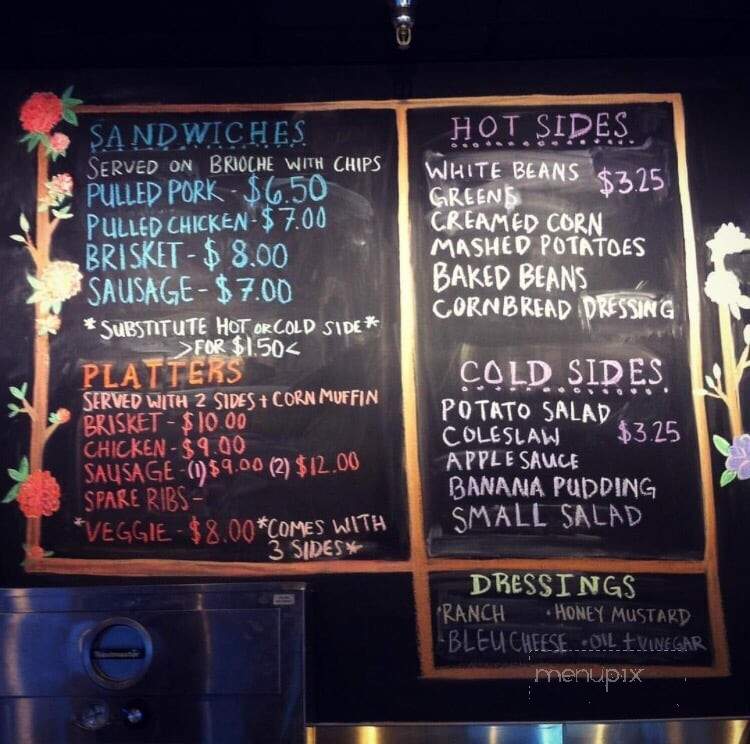 SANDWICHES
SERVED ON BRIOCHE WITH CHIPS
PULLED PORK - $6.50
PULLED CHICKEN - $7.00
BRISKET - $8.00
SAUSAGE - $7.00
*SUBSTITUTE HOT OR COLD SIDE*
>FOR $1.50<
PLATTERS
SERVED WITH 2 SIDES + CORN MUFFIN
BRISKET - $10.00
CHICKEN - $9.00
SAUSAGE - (1) $9.00 (2) $12.00
SPARE RIBS -
*VEGGIE - $8.00 *COMES WITH
3 SIDES*
HOT SIDES
WHITE BEANS $3.25
GREENS
CREAMED CORN
MASHED POTATOES
BAKED BEANS
CORNBREAD DRESSING
COLD SIDES
POTATO SALAD
COLESLAW $3.25
APPLE SAUCE
BANANA PUDDING
SMALL SALAD
DRESSINGS
•RANCH •HONEY MUSTARD
•BLEU CHEESE •OIL + VINEGAR
menupix